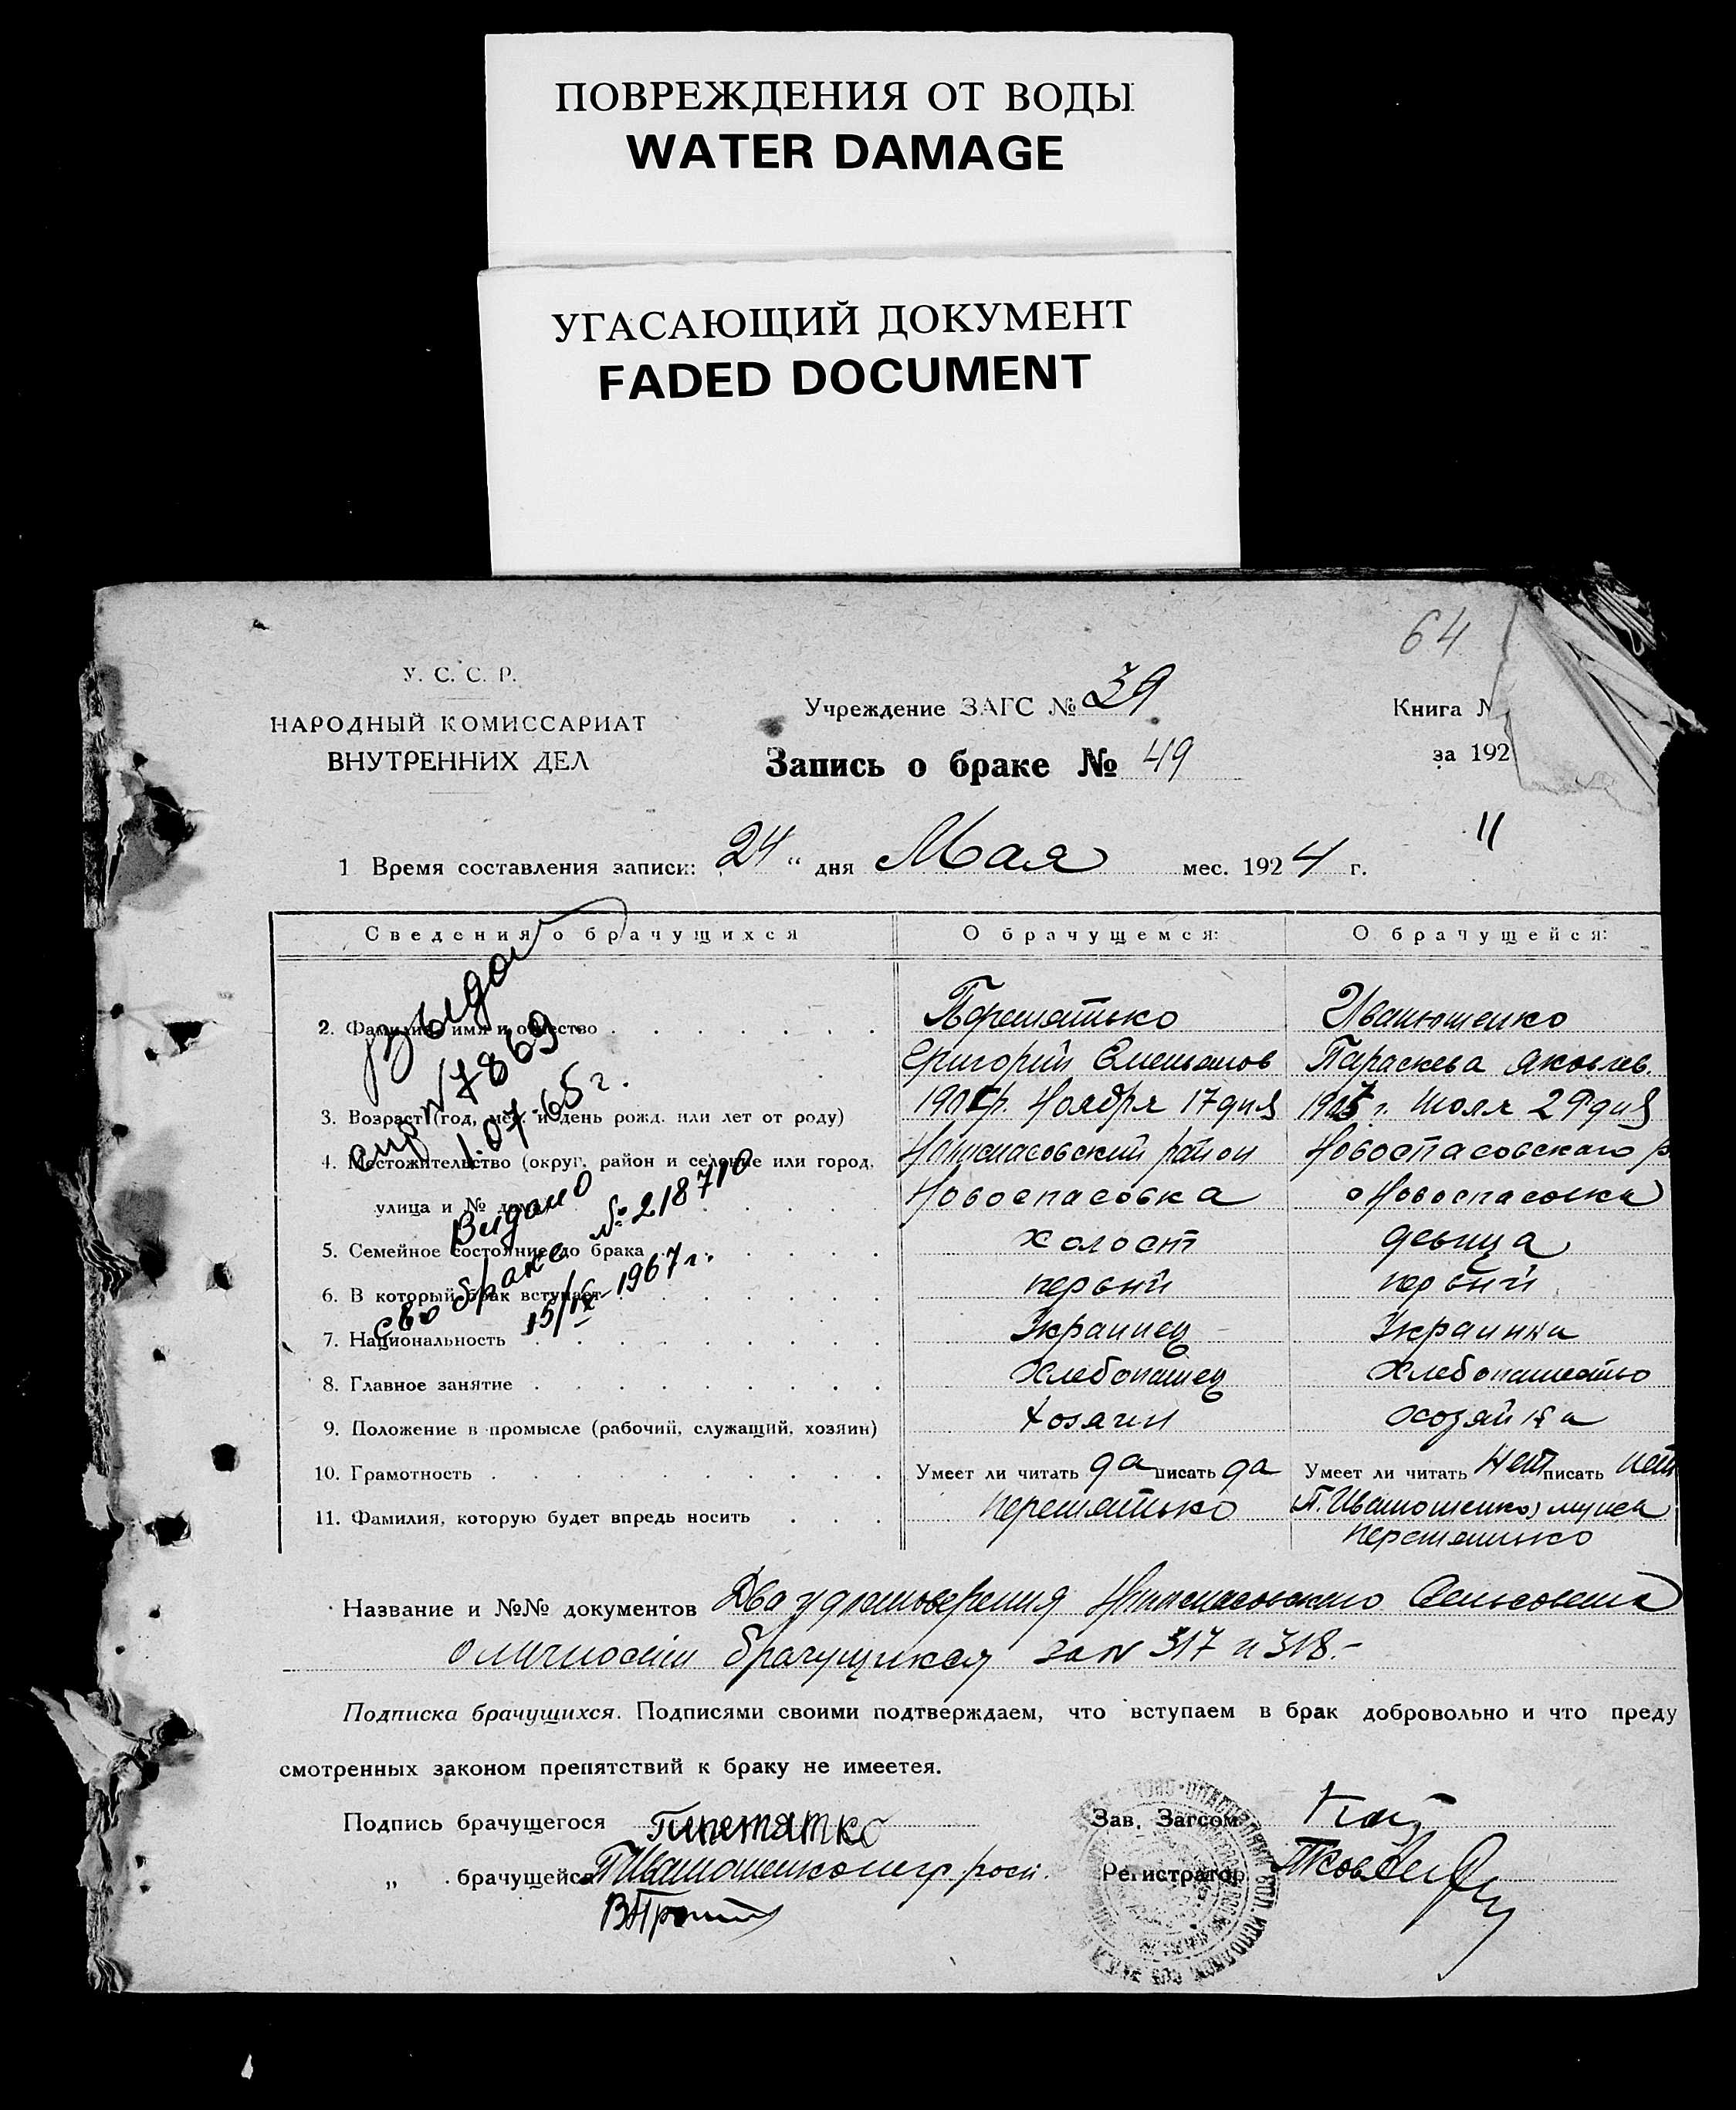 ПОВРЕЖДЕНИЯ ОТ ВОДЫ
WATER DAMAGE
УГАСАЮЩИЙ ДОКУМЕНТ
FADED DOCUMENT
64
У. С. С. Р.
НАРОДНЫЙ КОМИССАРИАТ
ВНУТРЕННИХ ДЕЛ
Учреждение ЗАГС № 39
Запись о браке № 49
Книга №
за 192
11
1 Время составления записи: 24 " дня Мая мес. 1924 г.
Сведения о брачущихся О брачущемся: О брачущейся:
2. Фамилия, имя и отчество Перетятько Иванющенко
Григорий Емельянов Параскева Яковлев.
3. Возраст (год, мес. и день рожд. или лет от роду) Ноября 17 дня Июля 29 дня
4. Местожительство (округ, район и селение или город, Новоспасовский район Новоспасовскаго р
улица и № дома) Новоспасовка Новоспасовка
5. Семейное состояние до брака холост девица
6. В который брак вступает первый первый
7. Национальность Украинец Украинка
8. Главное занятие Хлебопашец Хлебопашество
9. Положение в промысле (рабочий, служащий, хозяин) хозяин хозяйка
10. Грамотность Умеет ли читать да писать да Умеет ли читать нет писать нет
11. Фамилия, которую будет впредь носить Перетятько мужа
Перетятько
Выдан
N 7869
1.07.65 г.
Видано
св о браке № 218710
15/IX-1967 г.
Название и №№ документов Два удостоверения Новоспасовского Сельсовета
о личности брачущихся за N 317 и 318.-
Подписка брачущихся. Подписями своими подтверждаем, что вступаем в брак добровольно и что преду
смотренных законом препятствий к браку не имеетея.
Подпись брачущегося Зав. Загсом
„ брачущейся Регистратор